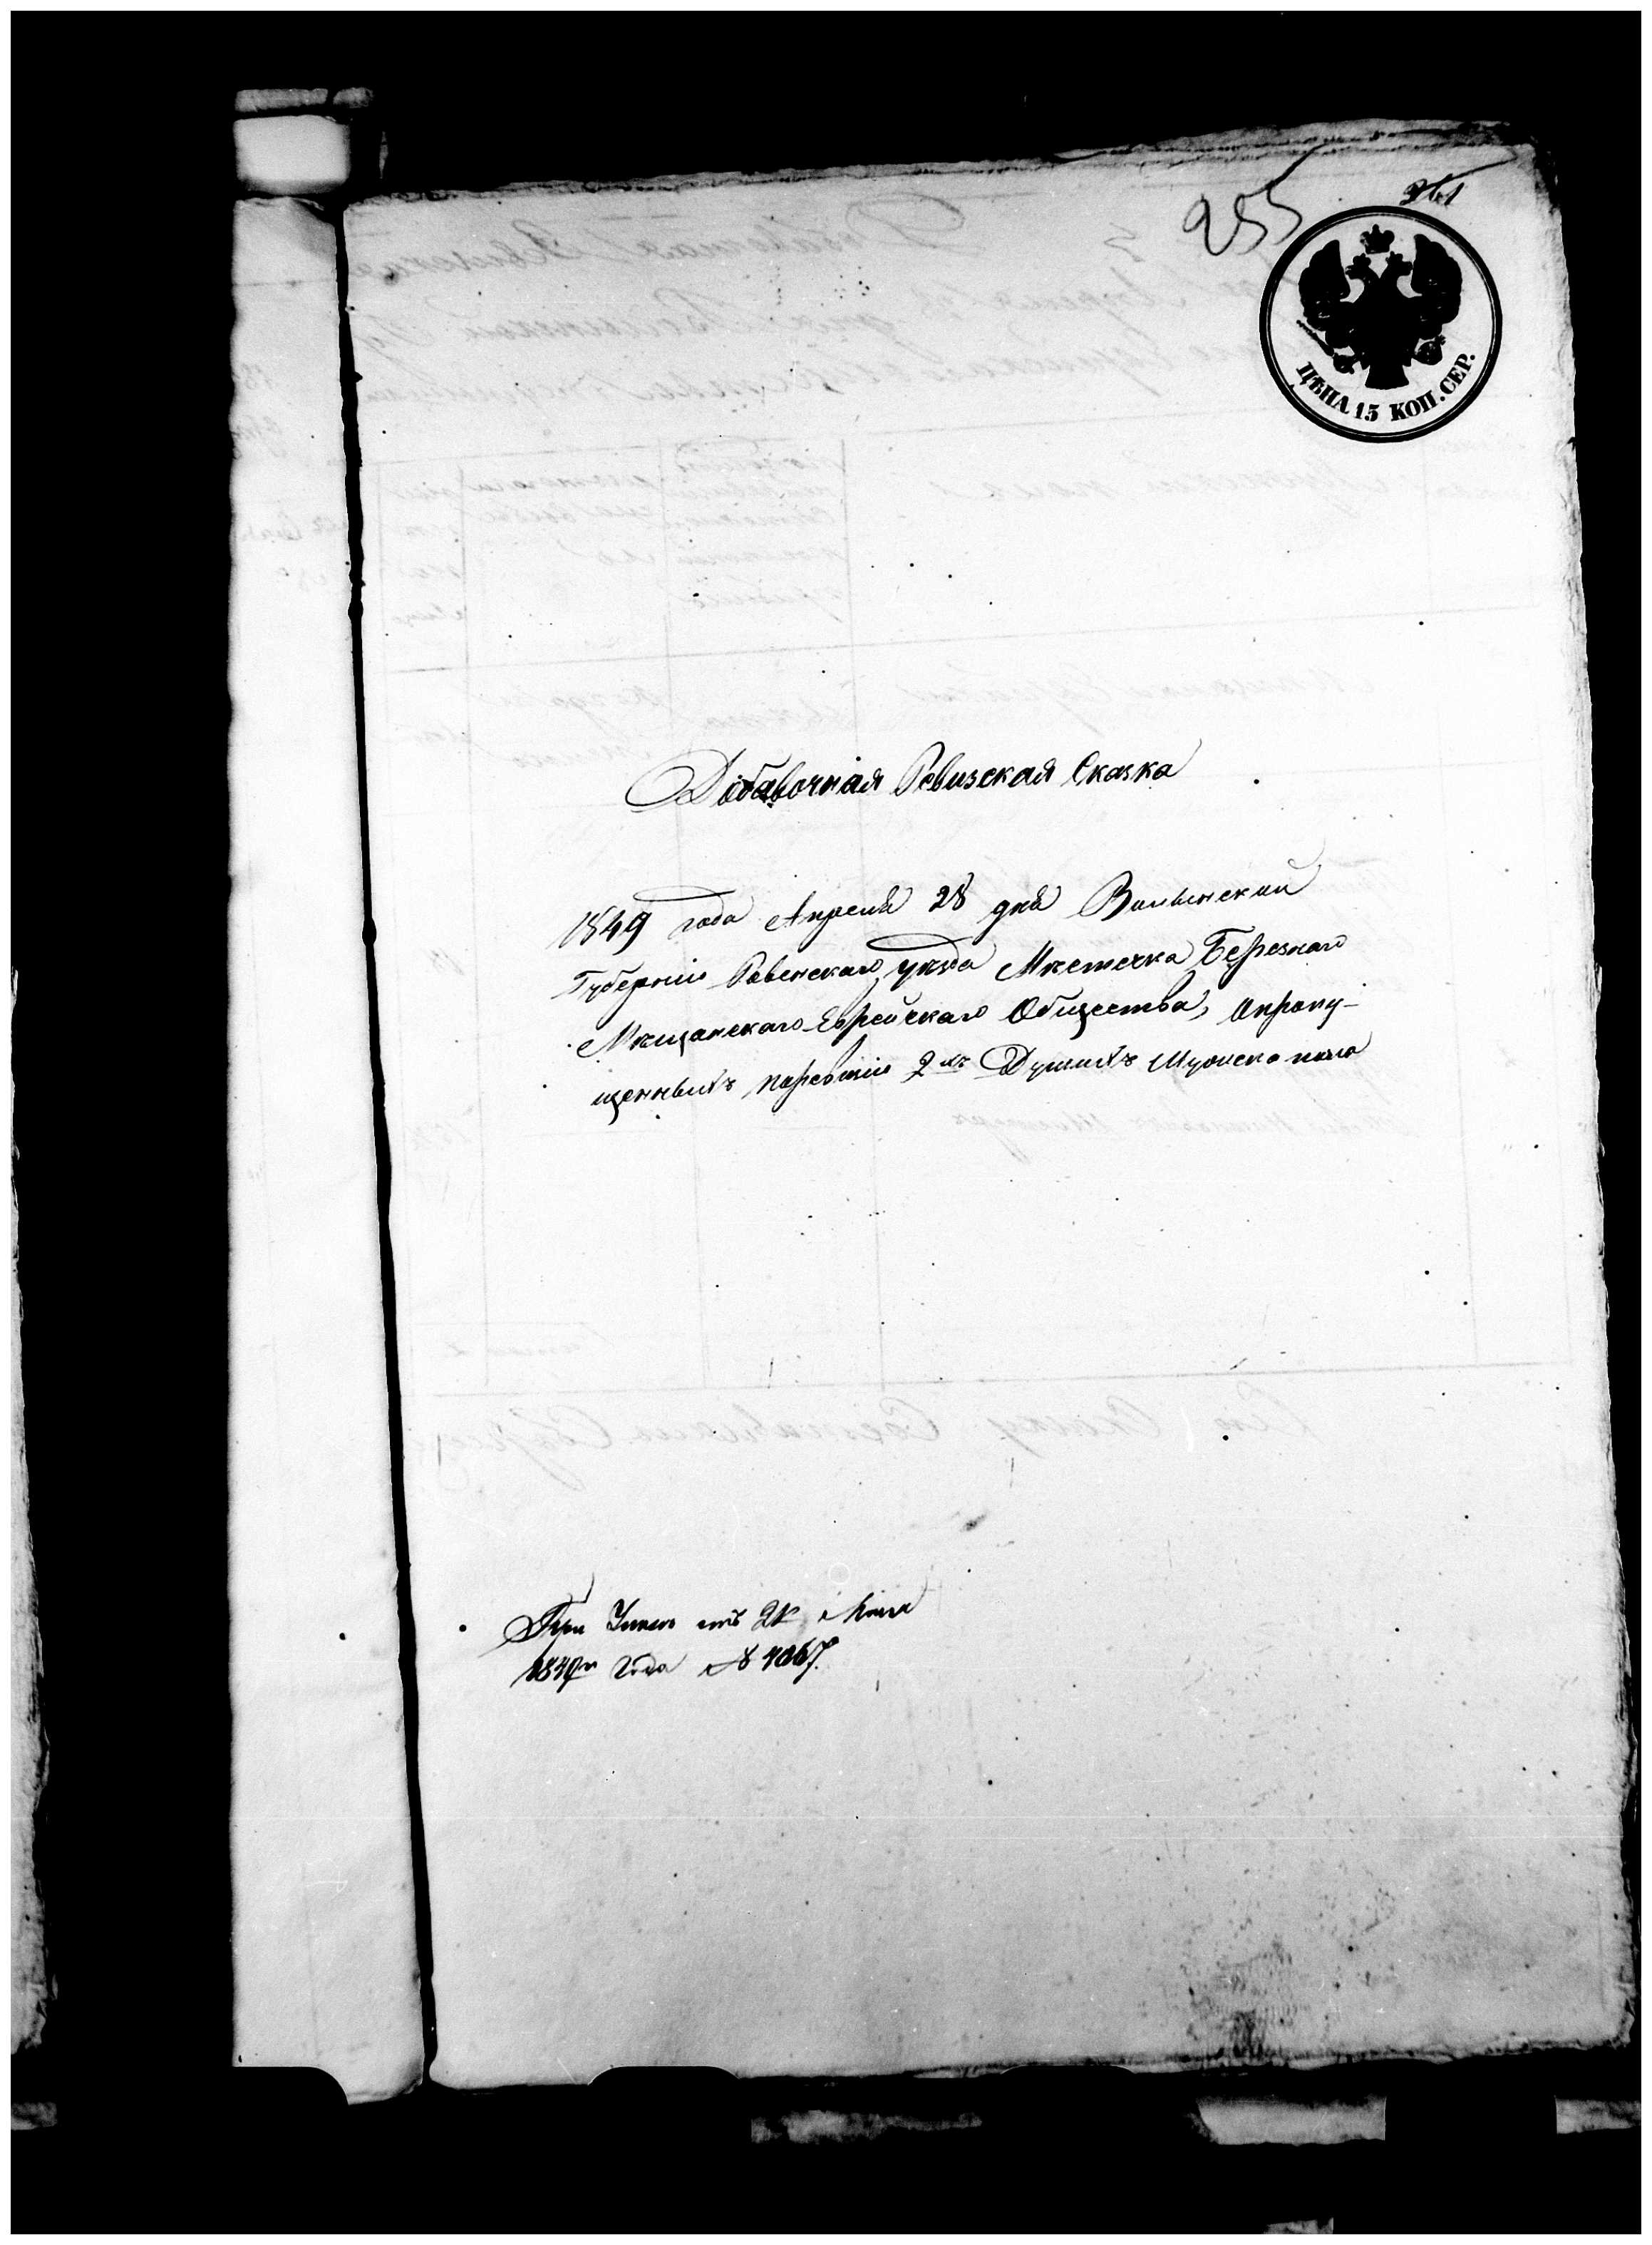 255
361
ЦѢНА 15 КОП. СЕР.
Добавочная Ревизская Сказка
1849 года Апреля 28 дня Волынской
Губерніи Ровенскаго уезда Мѣстечка Березнаго
Мѣщанскаго Еврейскаго Общества, Опропу-
щенныхъ поревизіи 2хъ Душахъ Мужеска пола
При отъ 21 Маія
1849го года № 4067.